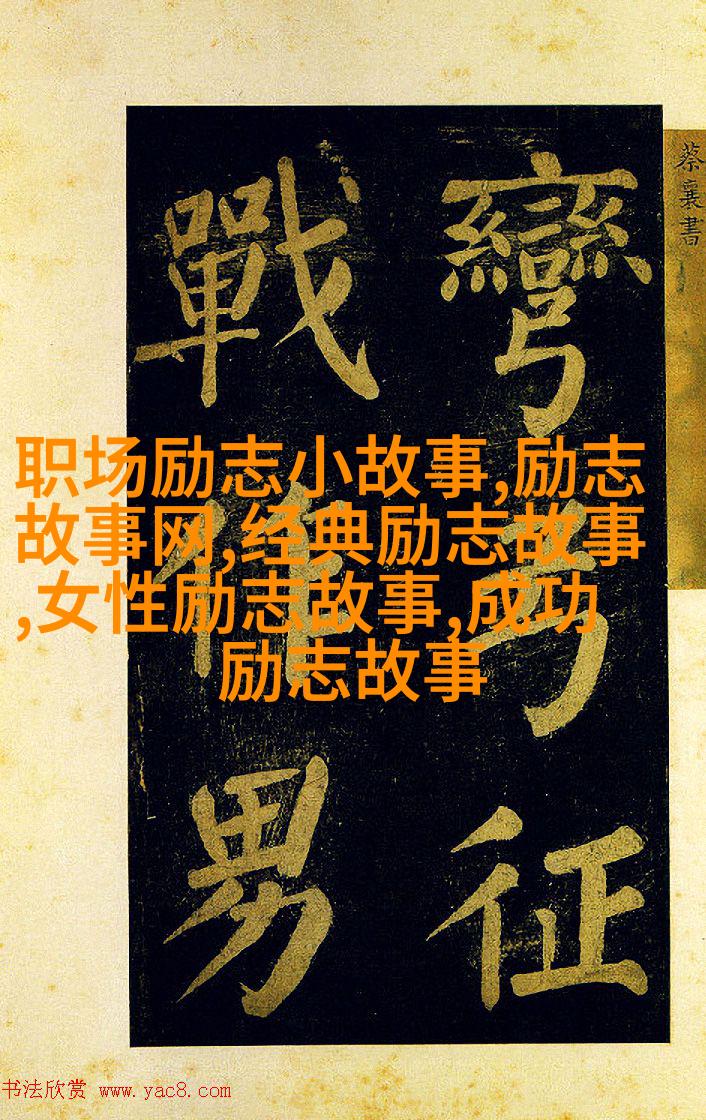 蔡襄書
彎弓征
戰作男
职场励志小故事,励志
故事网,经典励志故事
,女性励志故事,成功
励志故事
书法欣赏 www.yac8.com